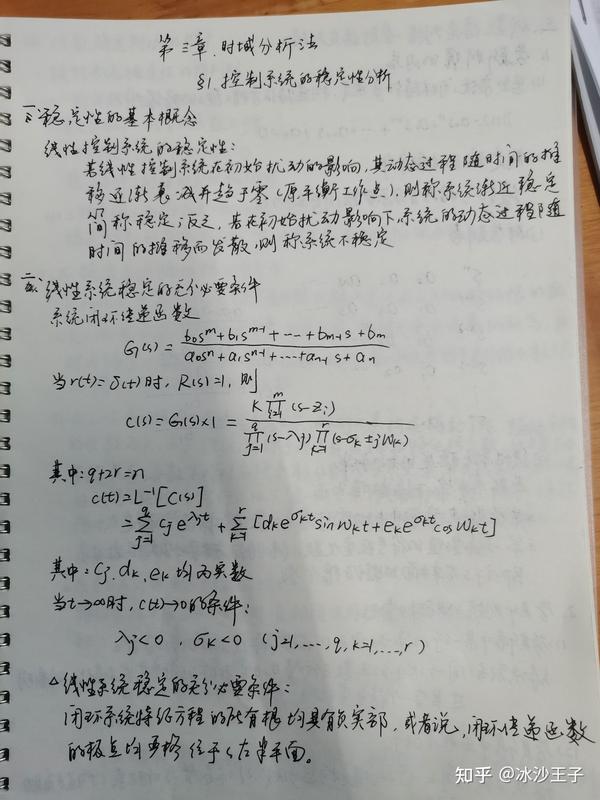 第三章.时域分析法
§1.控制系统的稳定性分析
一.稳定性的基本概念
线性控制系统的稳定性:
若线性控制系统在初始扰动的影响,其动态过程随时间的推
移逐渐衰减并趋于零(原平衡工作点),则称系统渐近稳定
简称稳定;反之,若在初始扰动影响下,系统的动态过程随
时间的推移而发散,则称系统不稳定
二.线性系统稳定的充分必要条件
系统闭环传递函数
G(s) = (b₀s^m+b₁s^(m-1)+---+b_(m-1)s+b_m)/(a₀s^n+a₁s^(n-1)+---+a_(n-1)s+a_n)
当r(t)=δ(t)时, R(s)=1, 则
C(s)=G(s)×1 = (K∏_(i=1)^m(s-z_i))/(∏_(j=1)^q(s-λ_j)∏_(k=1)^r(s-σ_k±jω_k))
其中:q+2r=n
c(t)=L⁻¹[C(s)]
=∑_(j=1)^q c_j e^(λ_j t) + ∑_(k=1)^r [d_k e^(σ_k t) sin ω_k t + e_k e^(σ_k t) cos ω_k t]
其中:c_j, d_k, e_k均为实数
当t→∞时, c(t)→0的条件:
λ_j<0, σ_k<0 (j=1,---,q, k=1,...,r)
△线性系统稳定的充分必要条件:
闭环系统特征方程的所有根均具有负实部,或者说,闭环传递函数
的极点均严格位于s左半平面。
知乎 @冰沙王子